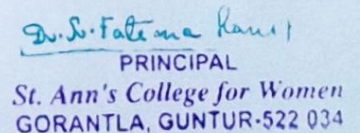 Dr. S. Fatima Rani
PRINCIPAL
St. Ann's College for Women
GORANTLA, GUNTUR-522 034